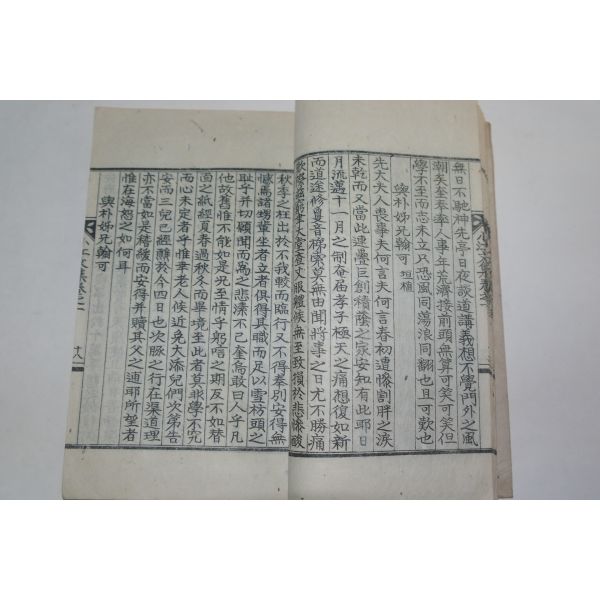 無日不馳神先亭日夜談道講義想不覺門外之風
潮矣至奉率人事年荒濟接前頭無算可笑可笑但
學不至而志未立只恐風同蕩浪同翻也且可歎也
與朴姊兄翰可 垣樵
先大夫人喪事夫何言夫何言春初遭慘割胖之淚
未乾而又當此連疊巨創積蔭之家安知有此耶日
月流邁十一月之制奄屆孝子極天之痛想復如新
而道途修敻音梯滦莫由聞將事之日尤不勝痛
無至致嶺於悲慘
秋季之枉出於不我較而臨行又不得奉別安得無
憾焉諸甥輩坐者立者俱得其職而足以雪枋頭之
恥乎并切願聞而爲之悲溱不已奎鳥敢曰人乎凡
他故舊惟不能如是况至情乎躬唁之期反不如替
之紙經夏春過秋冬而畢境至此者莫非學不究
而心未定者乎惟幸老人候近免大添兒們次第告
安而三兒已經艱於今四日也次豚之行在渠道理
亦不當如是稽緩而安得并贖其父之逋耶所望者
惟在海恕之如何耳
與朴姊兄翰可